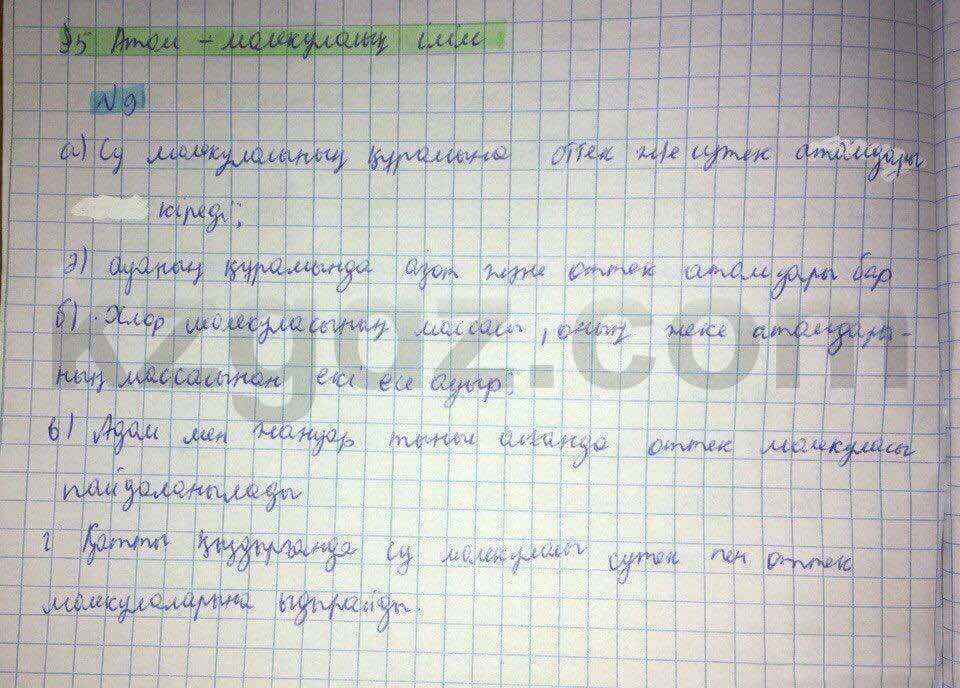 §5 Атом – молекулалық ілім
№9
а) Су молекуласының құрамына оттек және сутек атомдары
кіреді;
ә) ауаның құрамында азот және оттек атомдары бар
б) Хлор молекуласының массасы, оның жеке атомдары-
ның массасынан екі есе ауыр;
в) Адам мен жануар тыныс алғанда оттек молекуласы
пайдаланылады
г Қатты қыздырғанда су молекуласы сутек пен оттек
молекулаларына ыдырайды.
kzgdz.com